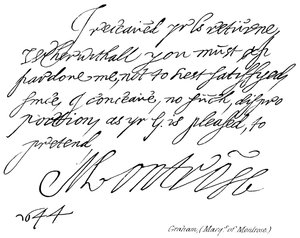 I receaved yr Lo returne,
you must
pardone me, not to rest satisfyed,
since, I conceave, no such, dispro
portion, as yr L. is pleased, to
pretend
Montrose
1644
Graham, (Marq.s of Montrose.)